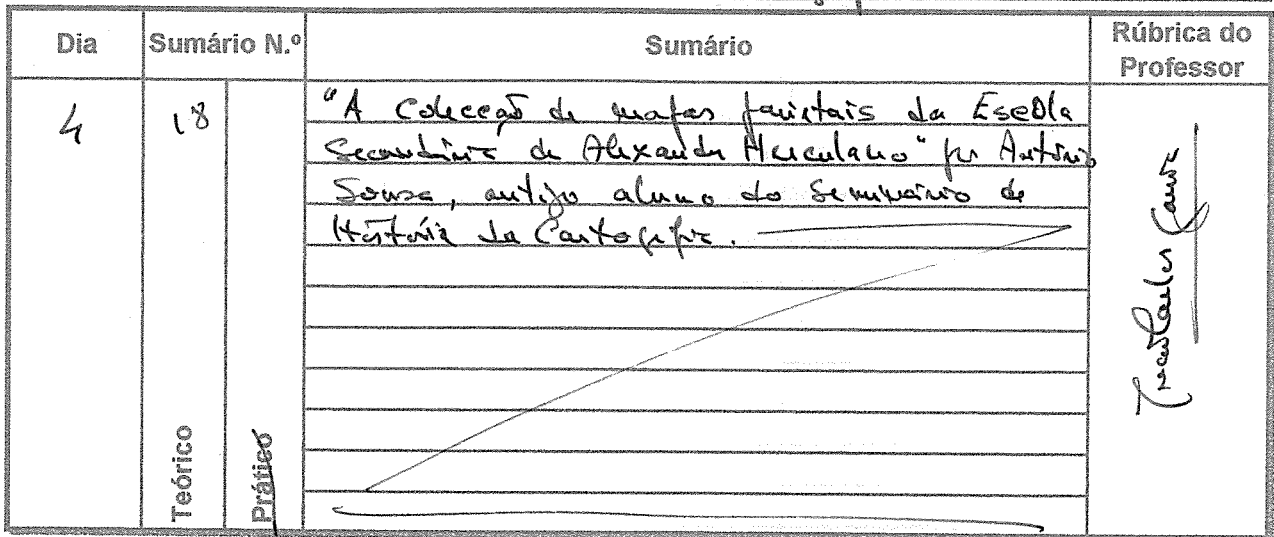 Dia
Sumário N.º
Sumário
Rúbrica do
Professor
4
18
"A colecção de mapas parietais da Escola
Secundária de Alexandre Herculano" por António
Sousa, antigo aluno do Seminário de
História da Cartografia.
Teórico
Prático